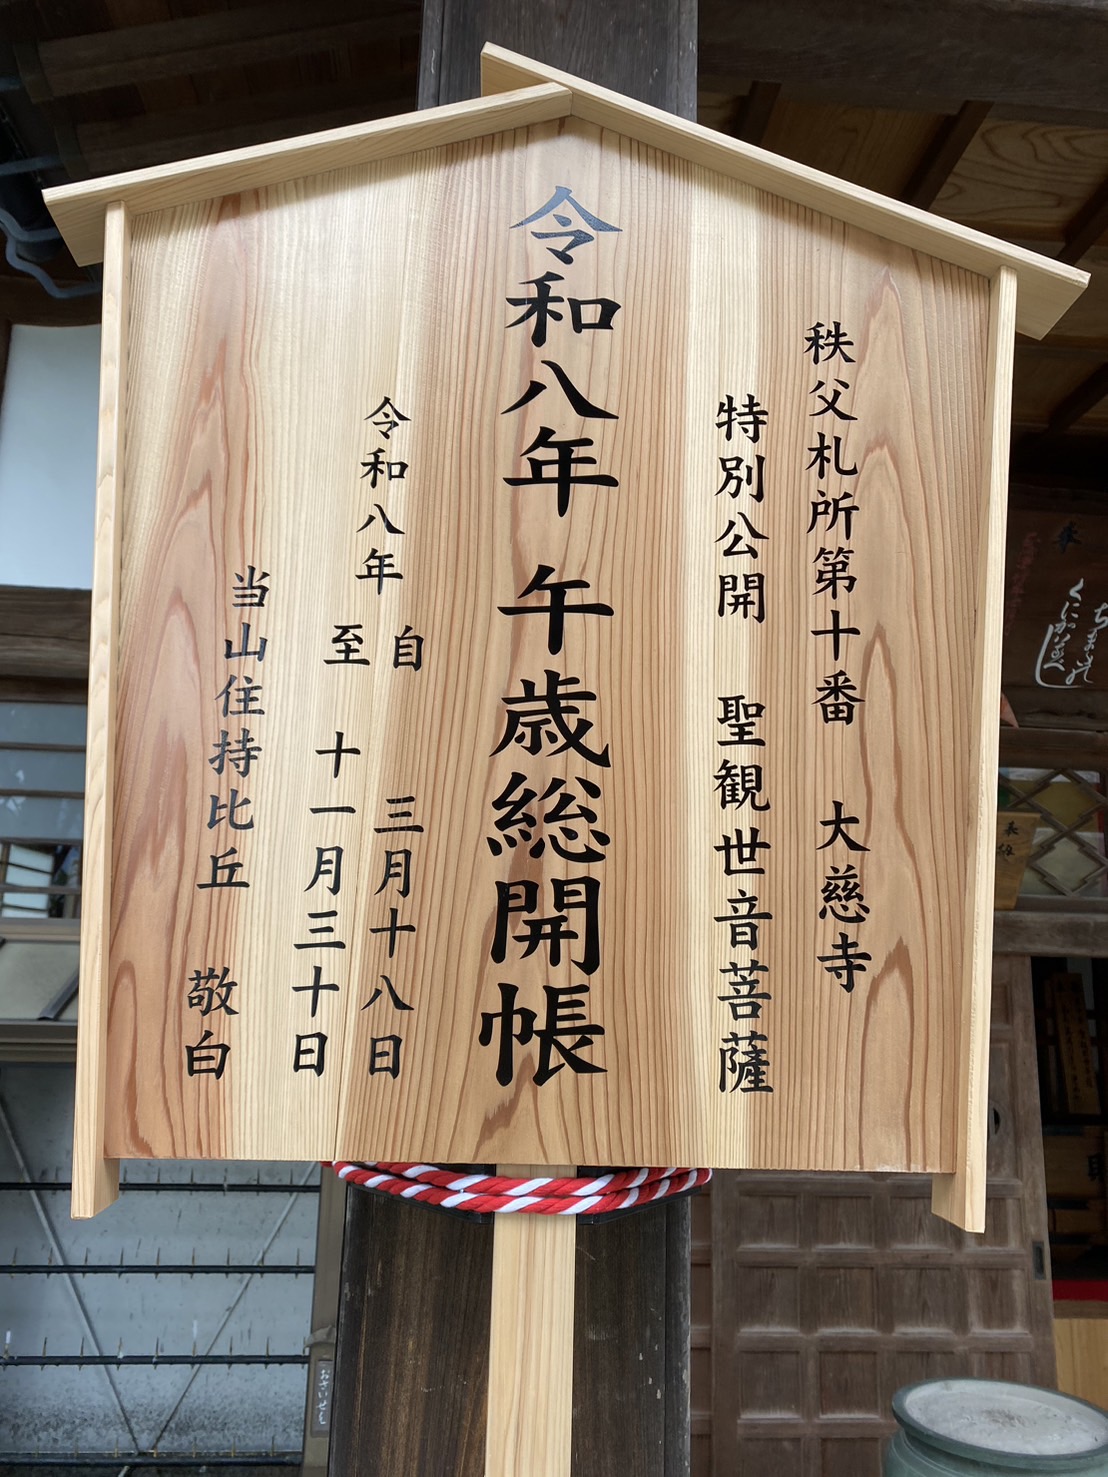 秩父札所第十番 大慈寺
特別公開 聖観世音菩薩
令和八年 午歳総開帳
令和八年
自 三月十八日
至 十一月三十日
当山住持比丘 敬白
おさいせん